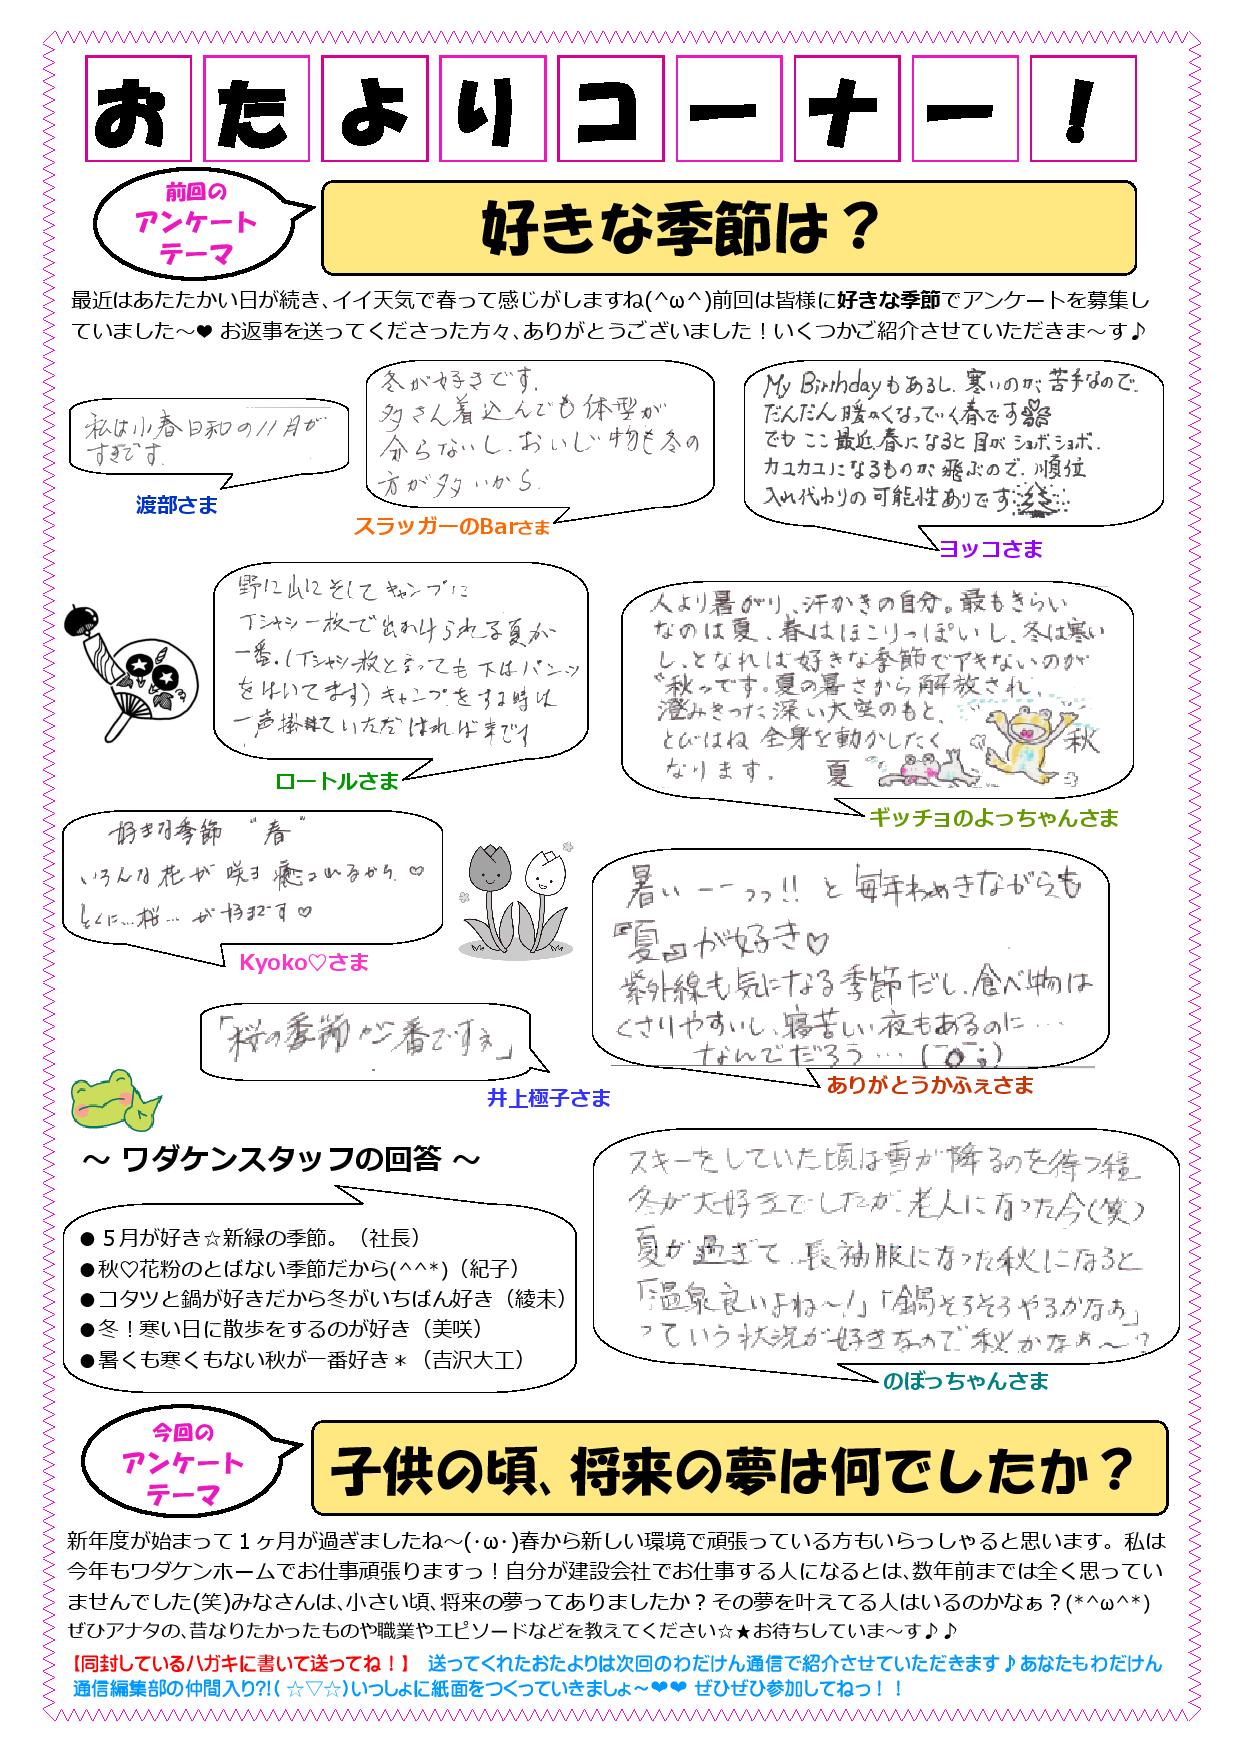 おたよりコーナー！
前回の
アンケート
テーマ
好きな季節は？
最近はあたたかい日が続き、イイ天気で春って感じがしますね(^ω^)前回は皆様に好きな季節でアンケートを募集し
ていました～♥ お返事を送ってくださった方々、ありがとうございました！いくつかご紹介させていただきま～す♪
私は小春日和の11月が
すきです。
渡部さま
冬が好きです。
多さん着込んでも体型が
分らないし、おいしい物も冬の
方が多いから。
スラッガーのBarさま
My Birthdayもあるし、寒いのが苦手なので、
だんだん暖かくなっていく春です
でもここ最近、春になると目がショボショボ、
カユカユになるものが飛ぶので、順位
入れ代わりの可能性ありです
ヨッコさま
野に山にそしてキャンプに
Tシャシ一枚で出かけられる夏が
一番。(Tシャシ一枚と言っても下はパンツ
をはいてます)キャンプをする時は
一声掛けていただければ幸です
ロートルさま
人より暑がり、汗かきの自分。最もきらい
なのは夏、春はほこりっぽいし、冬は寒い
し、となれば好きな季節でアキないのが
"秋"っです。夏の暑さから解放され、
澄みきった深い大空のもと、
とびはね全身を動かしたく
なります。
夏
秋
ギッチョのよっちゃんさま
好きな季節 "春"
いろんな花が咲き癒されるから♡
とくに…桜…が好きです♡
Kyoko♡さま
暑いーーっっ!! と毎年わめきながらも
『夏』が好き♡
紫外線も気になる季節だし、食べ物は
くさりやすいし、寝苦しい夜もあるのに…
なんでだろう…(￣o￣;)
ありがとうかふぇさま
「桜の季節が一番ですネ」
井上極子さま
～ ワダケンスタッフの回答 ～
●５月が好き☆新緑の季節。（社長）
●秋♡花粉のとばない季節だから(^^*)（紀子）
●コタツと鍋が好きだから冬がいちばん好き（綾未）
●冬！寒い日に散歩をするのが好き（美咲）
●暑くも寒くもない秋が一番好き＊（吉沢大工）
スキーをしていた頃は雪が降るのを待つ程
冬が大好きでしたが、老人になった今(笑)
夏が過ぎて、長袖服になった秋になると
「温泉良いよね～!」「鍋そろそろやるかなぁ」
っていう状況が好きなので秋かなぁ～?
のぼっちゃんさま
今回の
アンケート
テーマ
子供の頃、将来の夢は何でしたか？
新年度が始まって１ヶ月が過ぎましたね～(・ω・)春から新しい環境で頑張っている方もいらっしゃると思います。私は
今年もワダケンホームでお仕事頑張りますっ！自分が建設会社でお仕事する人になるとは、数年前までは全く思ってい
ませんでした(笑)みなさんは、小さい頃、将来の夢ってありましたか？その夢を叶えてる人はいるのかなぁ？(*^ω^*)
ぜひアナタの、昔なりたかったものや職業やエピソードなどを教えてください☆★お待ちしていま～す♪♪
【同封しているハガキに書いて送ってね！】 送ってくれたおたよりは次回のわだけん通信で紹介させていただきます♪あなたもわだけん
通信編集部の仲間入り?!( ☆▽☆)いっしょに紙面をつくっていきましょ～❤❤ ぜひぜひ参加してねっ！！